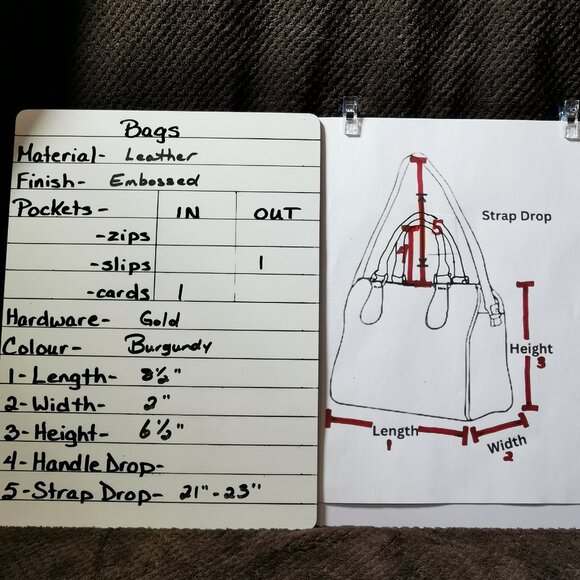 Bags
Material- Leather
Finish- Embossed
Pockets- IN OUT
-zips
-slips 1
-cards 1
Hardware- Gold
Colour- Burgundy
1-Length- 8½"
2-Width- 2"
3-Height- 6½"
4-Handle Drop-
5-Strap Drop- 21"-23"
Strap Drop
5
4
Height
3
Length
1
Width
2